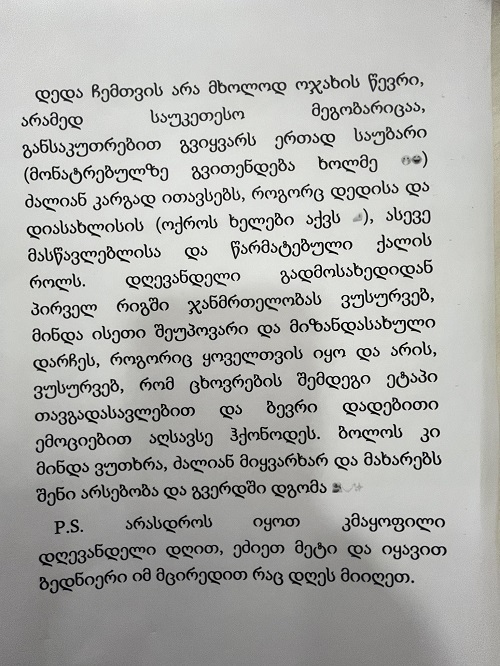 დედა ჩემთვის არა მხოლოდ ოჯახის წევრი,
არამედ საუკეთესო მეგობარიცაა,
განსაკუთრებით გვიყვარს ერთად საუბარი
(მონატრებულზე გვითენდება ხოლმე 🔥😂)
ძალიან კარგად ითავსებს, როგორც დედისა და
დიასახლისის (ოქროს ხელები აქვს ), ასევე
მასწავლებლისა და წარმატებული ქალის
როლს. დღევანდელი გადმოსახედიდან
პირველ რიგში ჯანმრთელობას ვუსურვებ,
მინდა ისეთი შეუპოვარი და მიზანდასახული
დარჩეს, როგორიც ყოველთვის იყო და არის,
ვუსურვებ, რომ ცხოვრების შემდეგი ეტაპი
თავგადასავლებით და ბევრი დადებითი
ემოციებით აღსავსე ჰქონოდეს. ბოლოს კი
მინდა ვუთხრა, ძალიან მიყვარხარ და მახარებს
შენი არსებობა და გვერდში დგომა
P.S. არასდროს იყოთ კმაყოფილი
დღევანდელი დღით, ეძიეთ მეტი და იყავით
ბედნიერი იმ მცირედით რაც დღეს მიიღეთ.